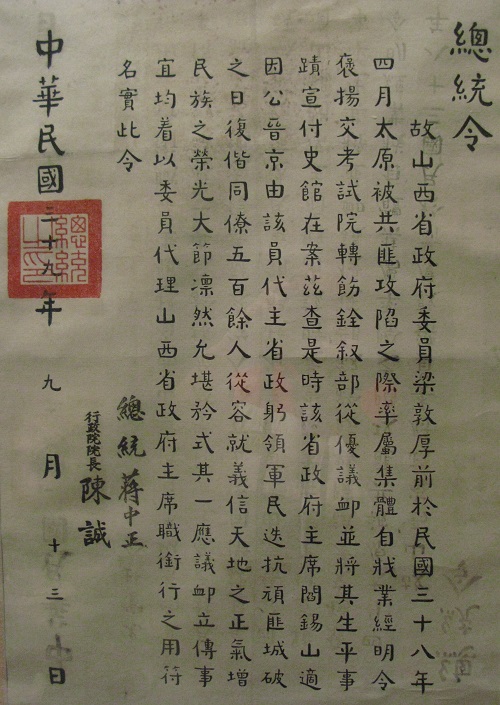 總統令
故山西省政府委員梁敦厚前於民國三十八年
四月太原被共匪攻陷之際率屬集體自戕業經明令
褒揚交考試院轉飭銓敘部從優議卹並將其生平事
蹟宣付史館在案茲查是時該省政府主席閻錫山適
因公晉京由該員代主省政躬領軍民迭抗頑匪城破
之日復偕同僚五百餘人從容就義信天地之正氣增
民族之榮光大節凛然允堪矜式其一應議卹立傳事
宜均着以委員代理山西省政府主席職銜行之用符
名實此令
總統 蔣中正
行政院院長 陳誠
中華民國三十九年九月十三日
總統之印